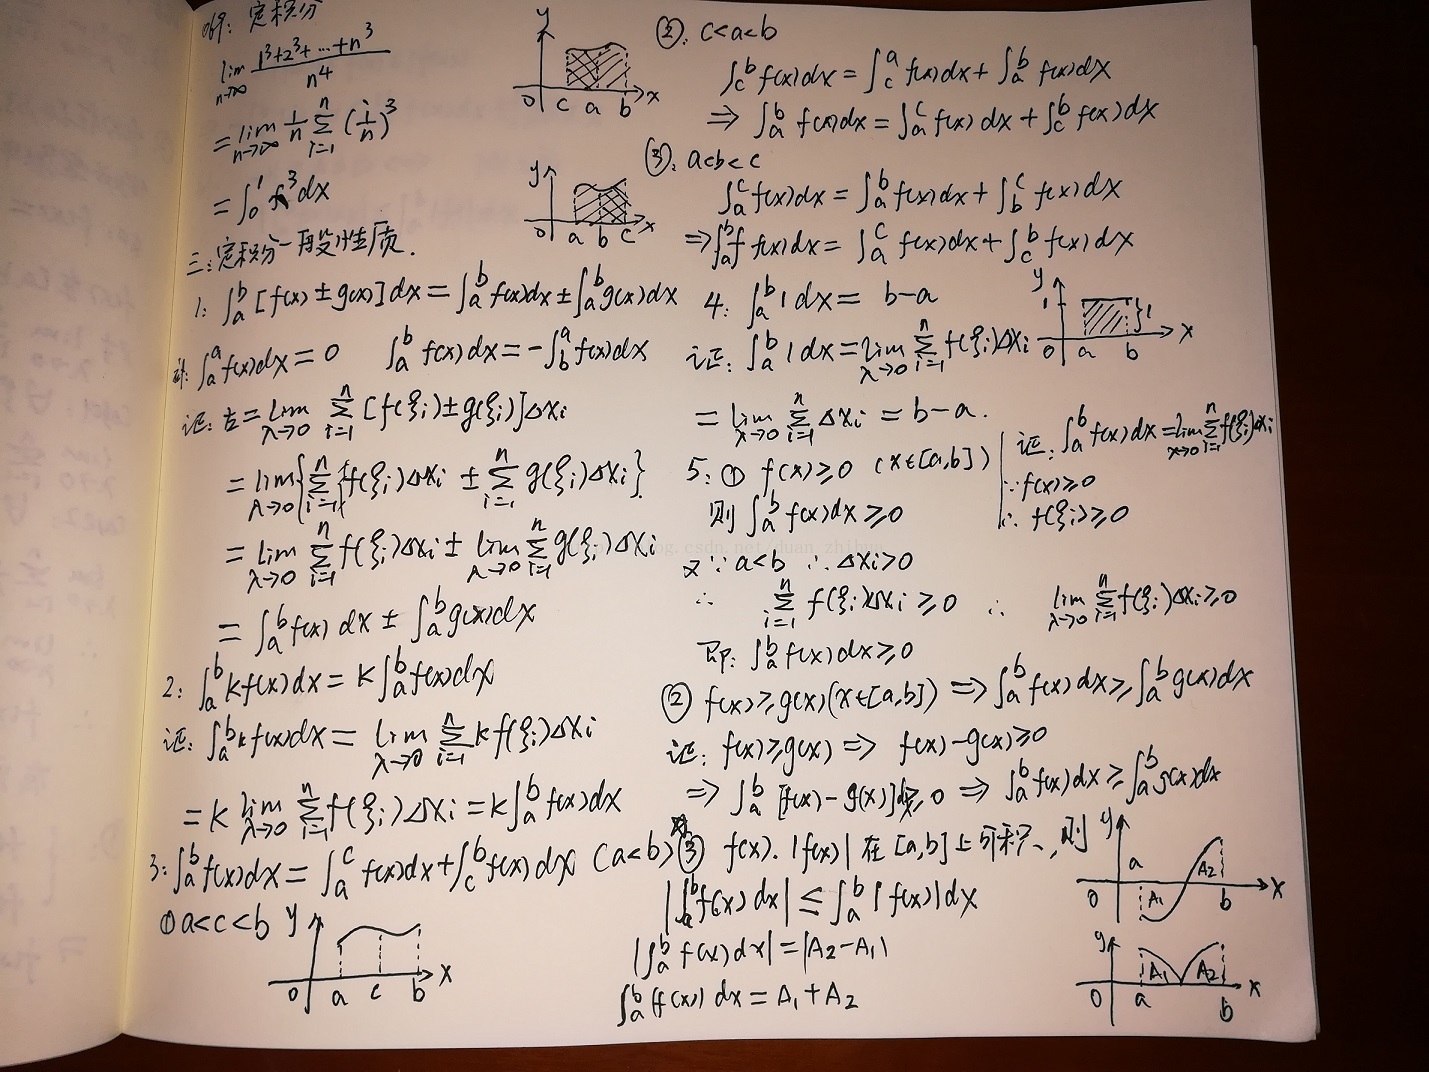 例: 定积分
lim n→∞ (1³+2³+…+n³)/n⁴
= lim n→∞ 1/n Σ_{i=1}^{n} (i/n)³
= ∫₀¹ x³dx
三: 定积分一般性质.
1: ∫_a^b [f(x)±g(x)]dx = ∫_a^b f(x)dx ± ∫_a^b g(x)dx
∫_a^a f(x)dx = 0 ∫_a^b f(x)dx = -∫_b^a f(x)dx
证: 左 = lim λ→0 Σ_{i=1}^{n} [f(ξi)±g(ξi)]Δxi
= lim λ→0 {Σ_{i=1}^{n} f(ξi)Δxi ± Σ_{i=1}^{n} g(ξi)Δxi}
= lim λ→0 Σ_{i=1}^{n} f(ξi)Δxi ± lim λ→0 Σ_{i=1}^{n} g(ξi)Δxi
= ∫_a^b f(x)dx ± ∫_a^b g(x)dx
2: ∫_a^b kf(x)dx = k∫_a^b f(x)dx
证: ∫_a^b kf(x)dx = lim λ→0 Σ_{i=1}^{n} kf(ξi)Δxi
= k lim λ→0 Σ_{i=1}^{n} f(ξi)Δxi = k∫_a^b f(x)dx
3: ∫_a^b f(x)dx = ∫_a^c f(x)dx + ∫_c^b f(x)dx (a<b)
① a<c<b
y
0 a c b x
y
0 c a b x
② . c<a<b
∫_c^b f(x)dx = ∫_c^a f(x)dx + ∫_a^b f(x)dx
⇒ ∫_a^b f(x)dx = ∫_a^c f(x)dx + ∫_c^b f(x)dx
y
0 a b c x
③ . a<b<c
∫_a^c f(x)dx = ∫_a^b f(x)dx + ∫_b^c f(x)dx
⇒ ∫_a^b f(x)dx = ∫_a^c f(x)dx + ∫_c^b f(x)dx
4: ∫_a^b 1dx = b-a
y
1 1
0 a b x
证: ∫_a^b 1dx = lim λ→0 Σ_{i=1}^{n} f(ξi)Δxi
= lim λ→0 Σ_{i=1}^{n} Δxi = b-a.
5: ① f(x)≥0 (x∈[a,b])
则 ∫_a^b f(x)dx≥0
证: ∫_a^b f(x)dx = lim λ→0 Σ_{i=1}^{n} f(ξi)Δxi
∵ f(x)≥0
∴ f(ξi)≥0
又∵ a<b ∴ Δxi>0
∴ Σ_{i=1}^{n} f(ξi)Δxi≥0 ∴ lim λ→0 Σ_{i=1}^{n} f(ξi)Δxi≥0
即: ∫_a^b f(x)dx≥0
② f(x)≥g(x)(x∈[a,b]) ⇒ ∫_a^b f(x)dx≥∫_a^b g(x)dx
证: f(x)≥g(x) ⇒ f(x)-g(x)≥0
⇒ ∫_a^b [f(x)-g(x)]dx≥0 ⇒ ∫_a^b f(x)dx≥∫_a^b g(x)dx
③ f(x). |f(x)| 在[a,b]上可积, 则
|∫_a^b f(x)dx| ≤ ∫_a^b |f(x)|dx
|∫_a^b f(x)dx| = |A₂-A₁|
∫_a^b |f(x)|dx = A₁+A₂
y
a A₂
0 A₁ b x
y
A₁ A₂
0 a b x